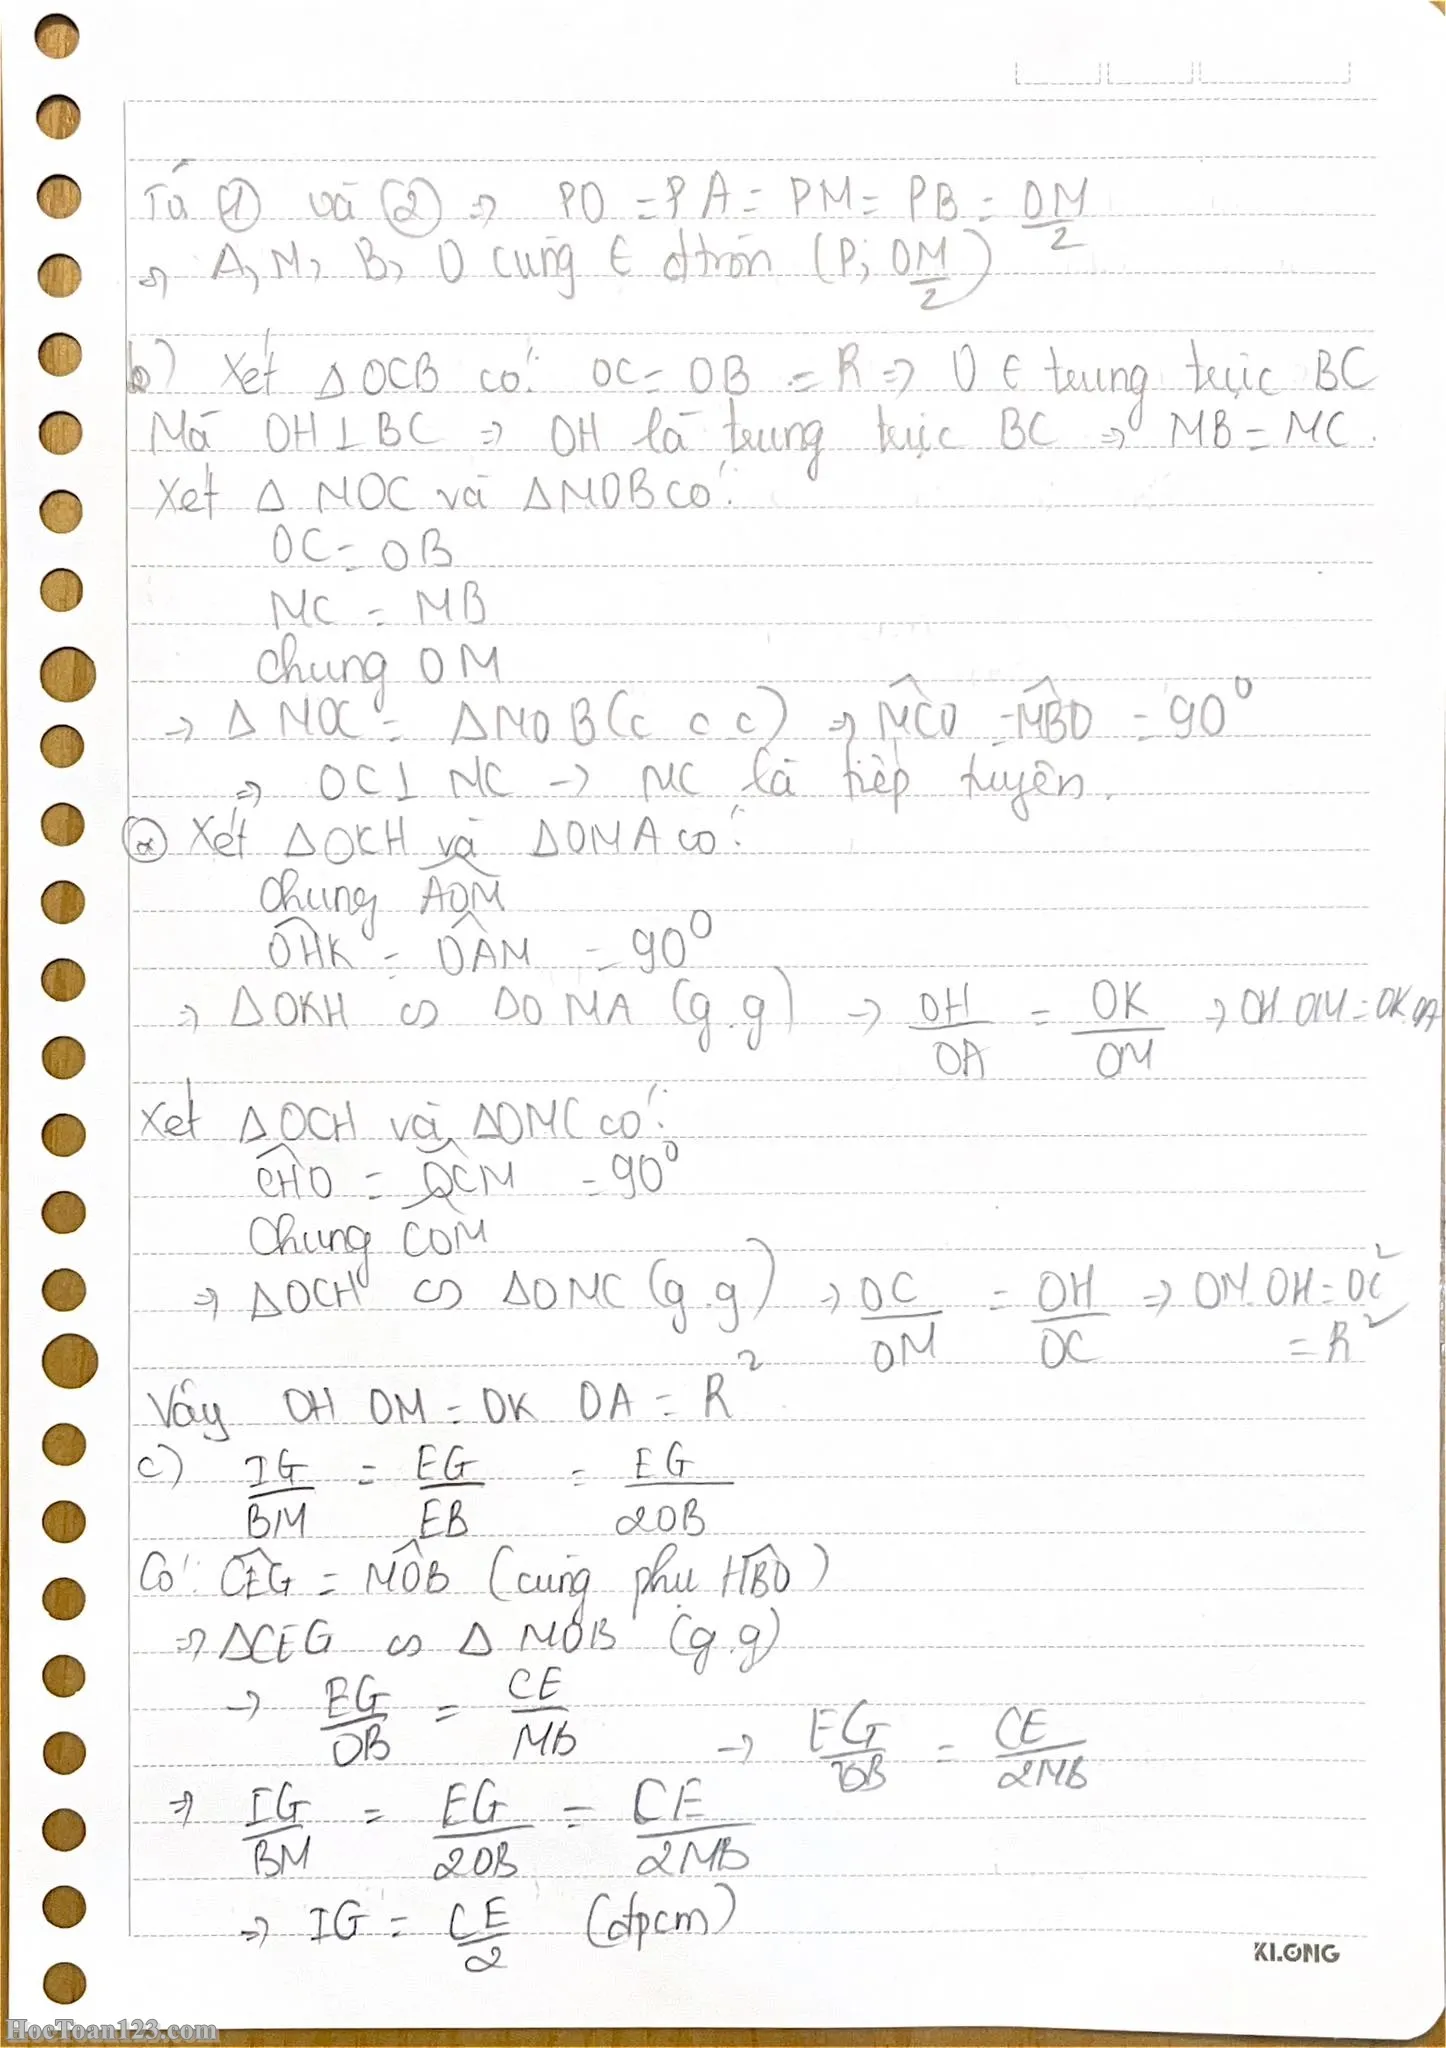 Từ ① và ② ⇒ PO = PA = PM = PB = OM/2
⇒ A, M, B, O cùng ∈ đtròn (P; OM/2)
b) Xét ΔOCB có: OC = OB = R ⇒ O ∈ trung trực BC
Mà OH ⊥ BC ⇒ OH là trung trực BC ⇒ MB = MC.
Xét Δ MOC và ΔMOB có:
OC = OB
MC = MB
chung OM
⇒ Δ MOC = ΔMOB (c c c) ⇒ M̂CO = M̂BO = 90⁰
⇒ OC ⊥ MC → MC là tiếp tuyến.
Xét ΔOKH và ΔOMA có:
chung ÂOM
ÔHK = OÂM = 90⁰
⇒ ΔOKH ∽ ΔOMA (g.g) ⇒ OH/OA = OK/OM ⇒ OH OM = OK.OA
Xét ΔOCH và ΔOMC có:
ĈHO = OĈM = 90⁰
Chung CÔM
⇒ ΔOCH ∽ ΔOMC (g.g) ⇒ OC/OM = OH/OC ⇒ OM.OH = OC²
= R²
Vây OH OM = OK OA = R²
c) IG/BM = EG/EB = EG/2OB
Có: ĈEG = MÔB (cùng phụ HB̂O)
⇒ ΔCEG ∽ Δ MOB (g.g)
→ EG/OB = CE/MB → EG/2OB = CE/2MB
⇒ IG/BM = EG/2OB = CE/2MB
⇒ IG = CE/2 (đpcm)
KLONG
HocToan123.com